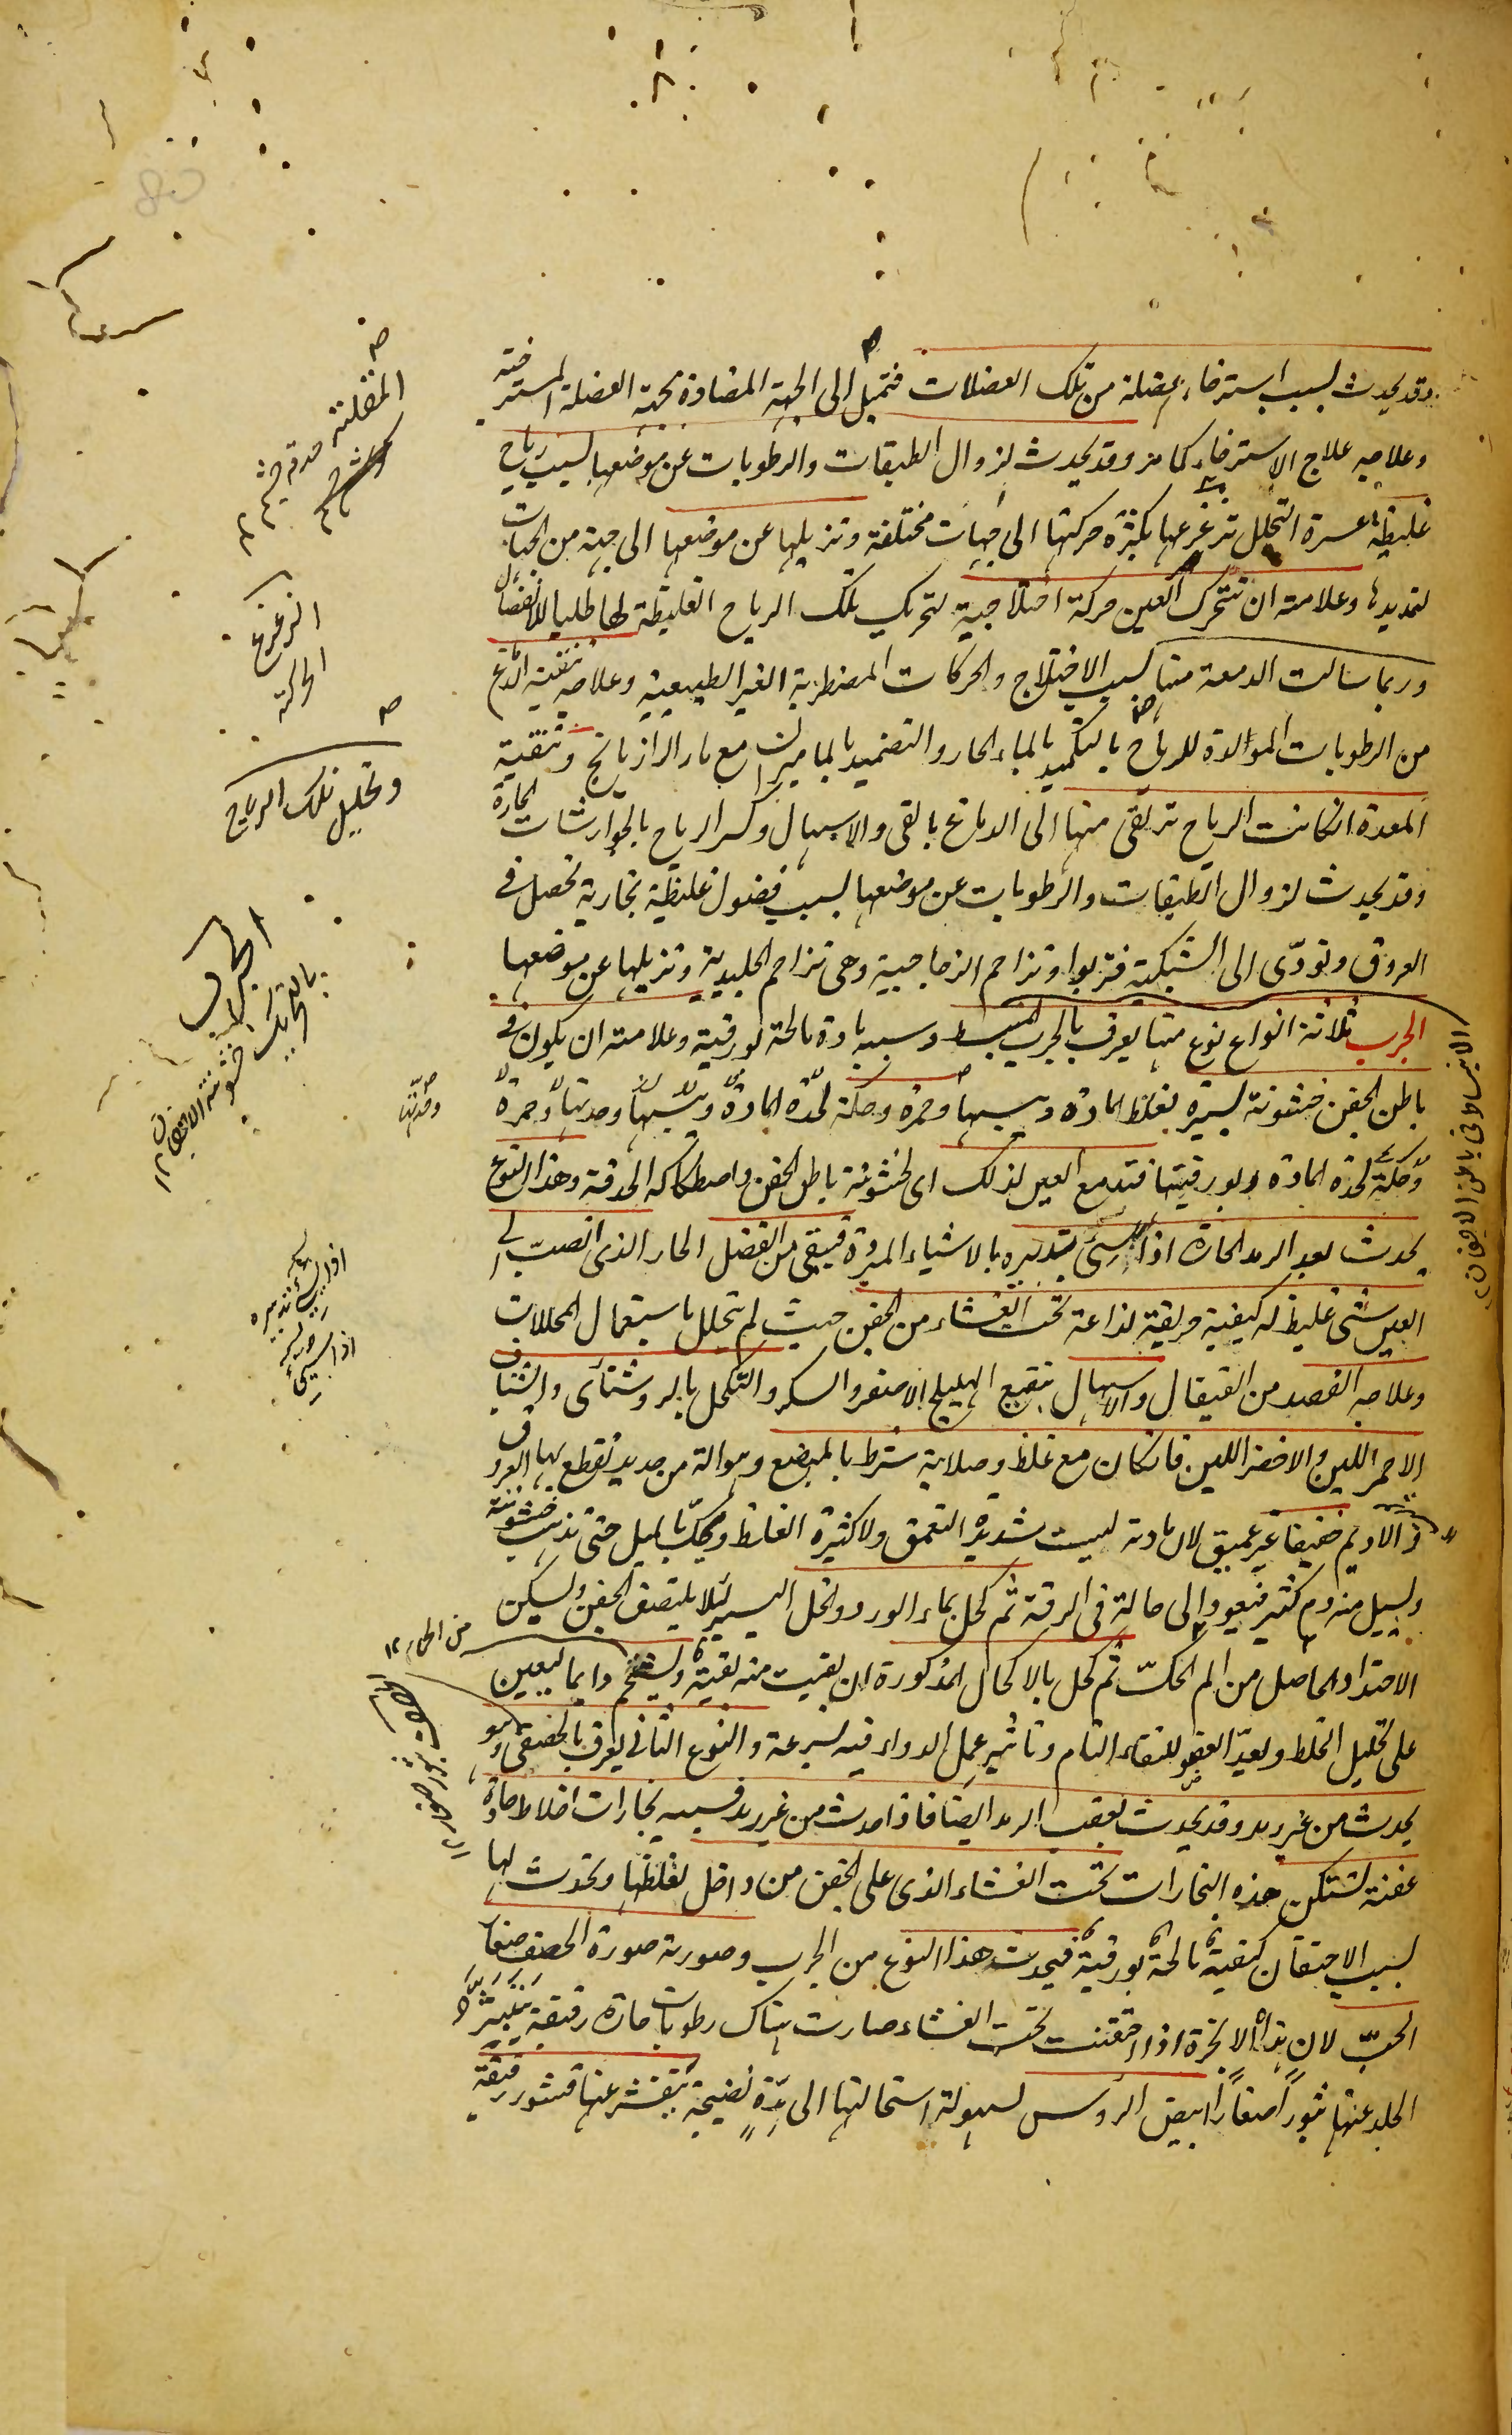 وقد يحدث لسبب استرخاء عضلة من تلك العضلات فتميل الى الجهة المضادة لجهة العضلة المسترخية
وعلاجه علاج الاسترخاء كما مر وقد يحدث لزوال الطبقات والرطوبات عن موضعها لسبب رياح
غليظة عسرة التحلل تزعزعها بكثرة حركتها الى جهات مختلفة وتزيلها عن موضعها الى جهة من الجهات
لتمديدها وعلامته ان تتحرك العين حركة اختلاجية لتحريك تلك الرياح الغليظة لها طلبا للانفصال
وربما سالت الدمعة منها لسبب الاختلاج والحركات المضطربة الغير الطبيعية وعلاجه تنقية الدماغ
من الرطوبات المولدة للرياح بالتكميد بالماء الحار والتضميد بالماميران مع ماء الرازيانج وتنقية
المعدة ان كانت الرياح ترتقى منها الى الدماغ بالقى والاسهال وكسر الرياح بالجوارشات الحارة
وقد يحدث لزوال الطبقات والرطوبات عن موضعها لسبب فضول غليظة بخارية تحصل فى
العروق وتودّى الى الشبكية فتربوا وتزاحم الزجاجية وهى تزاحم الجليدية وتزيلها عن موضعها
الجرب ثلاثة انواع نوع منها يعرف بالجرب المنبسط وسببه مادة مالحة بورقية وعلامته ان يكون فى
باطن الجفن خشونة يسيرة لغلظ المادة ويبسها وحمرة وحكة لحدّة المادة ويبسها وحدتها وحمرة
وحكة لحدة المادة وبورقيتها فتدمع العين لذلك اى لخشونة باطن الجفن واصطكاكه الحدقة وهذا النوع
يحدث بعد الرمد الحارة اذا اسئ تدبيره بالاشياء المبردة فيبقى من الفضل الحار الذى انصبّ الى
العين شئ غليظ له كيفية حريفة لذاعة تحت الغشاء من الجفن حيث لم يتحلل باستعمال المحللات
وعلاجه الفصد من القيفال والاسهال بنقيع الهليلج الاصفر والسكر والتكحل بالروشنائى والشياف
الاحمر اللين والاخضر اللين فان كان مع غلظ وصلابة شرط بالمبضع وهو آلة من حديد يقطع بها العروق
والاديم خفيفا غير عميق لان مادته ليست شديدة التعمق ولا كثيرة الغلظ ويحكّ بالميل حتى تذهب خشونته
ويسيل منه دم كثير فيعود الى حالة فى الرقة ثم كحل بماء الورد والخل اليسير لئلا يلتصق الجفن ويسكن
الاحتداد الحاصل من الم الحكّ ثم كحل بالاكحال المذكورة ان بقيت منه بقية ويستحم دايما ليعين
على تحليل الخلط ويعدّ العضو للنقاء التام وتاثير عمل الدواء فيه بسرعة والنوع الثانى يعرف بالحصفى وهو
يحدث من غير رمد وقد يحدث بعقب الرمد ايضا فاذا حدث من غير رمد فسببه بخارات اخلاط حادة
عفنة لتشتكن هذه البخارات تحت الغشاء الذى على الجفن من داخل لغلظها وتحدث لها
لسبب الاحتقان كيفية مالحة بورقية فيحدث هذا النوع من الجرب وصورته صورة الحصف صغار
الحبّ لان هذه الابخرة اذا احتقنت تحت الغشاء صارت هناك رطوبات حارة رقيقة يتبثر
الجلد عنها بثورا صغارا ابيض الرؤس لسهولة استحالتها الى مدّة نضيجة يتقشر عنها قشور رقيقة
المقلة
الزعزع
الحركة
وتحليل تلك الرياح
الجرب
بالتحريك خشونة الاجفان
وحدتها
من الحمام
الانبساط فى باطن الاجفان